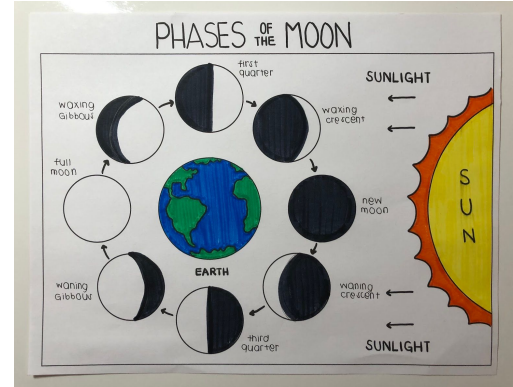 PHASES OF THE MOON
first
quarter
SUNLIGHT
waxing
Gibbous
waxing
crescent
full
moon
SUN
new
moon
EARTH
waning
Gibbous
waning
crescent
third
quarter
SUNLIGHT